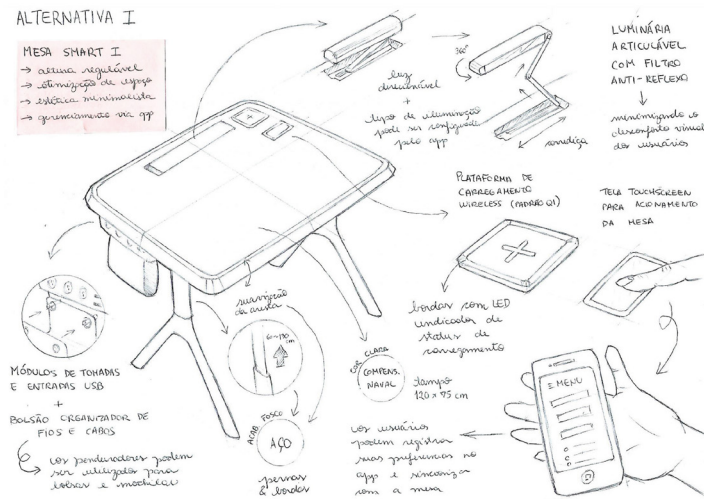 ALTERNATIVA I
MESA SMART I
→ altura regulável
→ otimização de espaço
→ estética minimalista
→ gerenciamento via app
luz
direcionável
+
tipo de iluminação
pode ser configurada
pelo app
360°
corrediça
LUMINÁRIA
ARTICULÁVEL
COM FILTRO
ANTI-REFLEXO
minimizando o
desconforto visual
dos usuários
PLATAFORMA DE
CARREGAMENTO
WIRELESS (PADRÃO QI)
TELA TOUCHSCREEN
PARA ACIONAMENTO
DA MESA
bordas com LED
indicador de
status de
carregamento
MÓDULOS DE TOMADAS
E ENTRADAS USB
+
BOLSÃO ORGANIZADOR DE
FIOS E CABOS
os penduradores podem
ser utilizados para
bolsas e mochilas
suavização
da aresta
cm
ACAB. FOSCO
AÇO
pernas
& bordas
COR CLARA
COMPENS.
NAVAL
tampo
120 x 75 cm
os usuários
podem registrar
suas preferências no
app e sincronizar
com a mesa
MENU